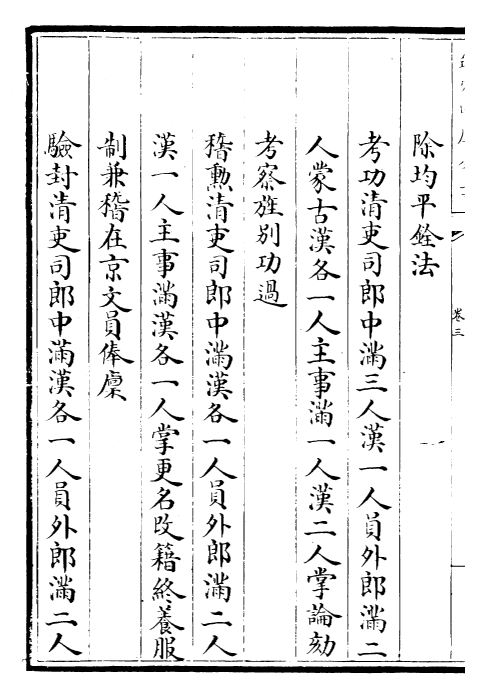 卷三
除均平銓法
考功清吏司郎中滿三人漢一人員外郎滿二
人蒙古漢各一人主事滿一人漢二人掌論劾
考察旌别功過
稽勲清吏司郎中滿漢各一人員外郎滿二人
漢一人主事滿漢各一人掌更名改籍終養服
制兼稽在京文員俸廩
驗封清吏司郎中滿漢各一人員外郎滿二人